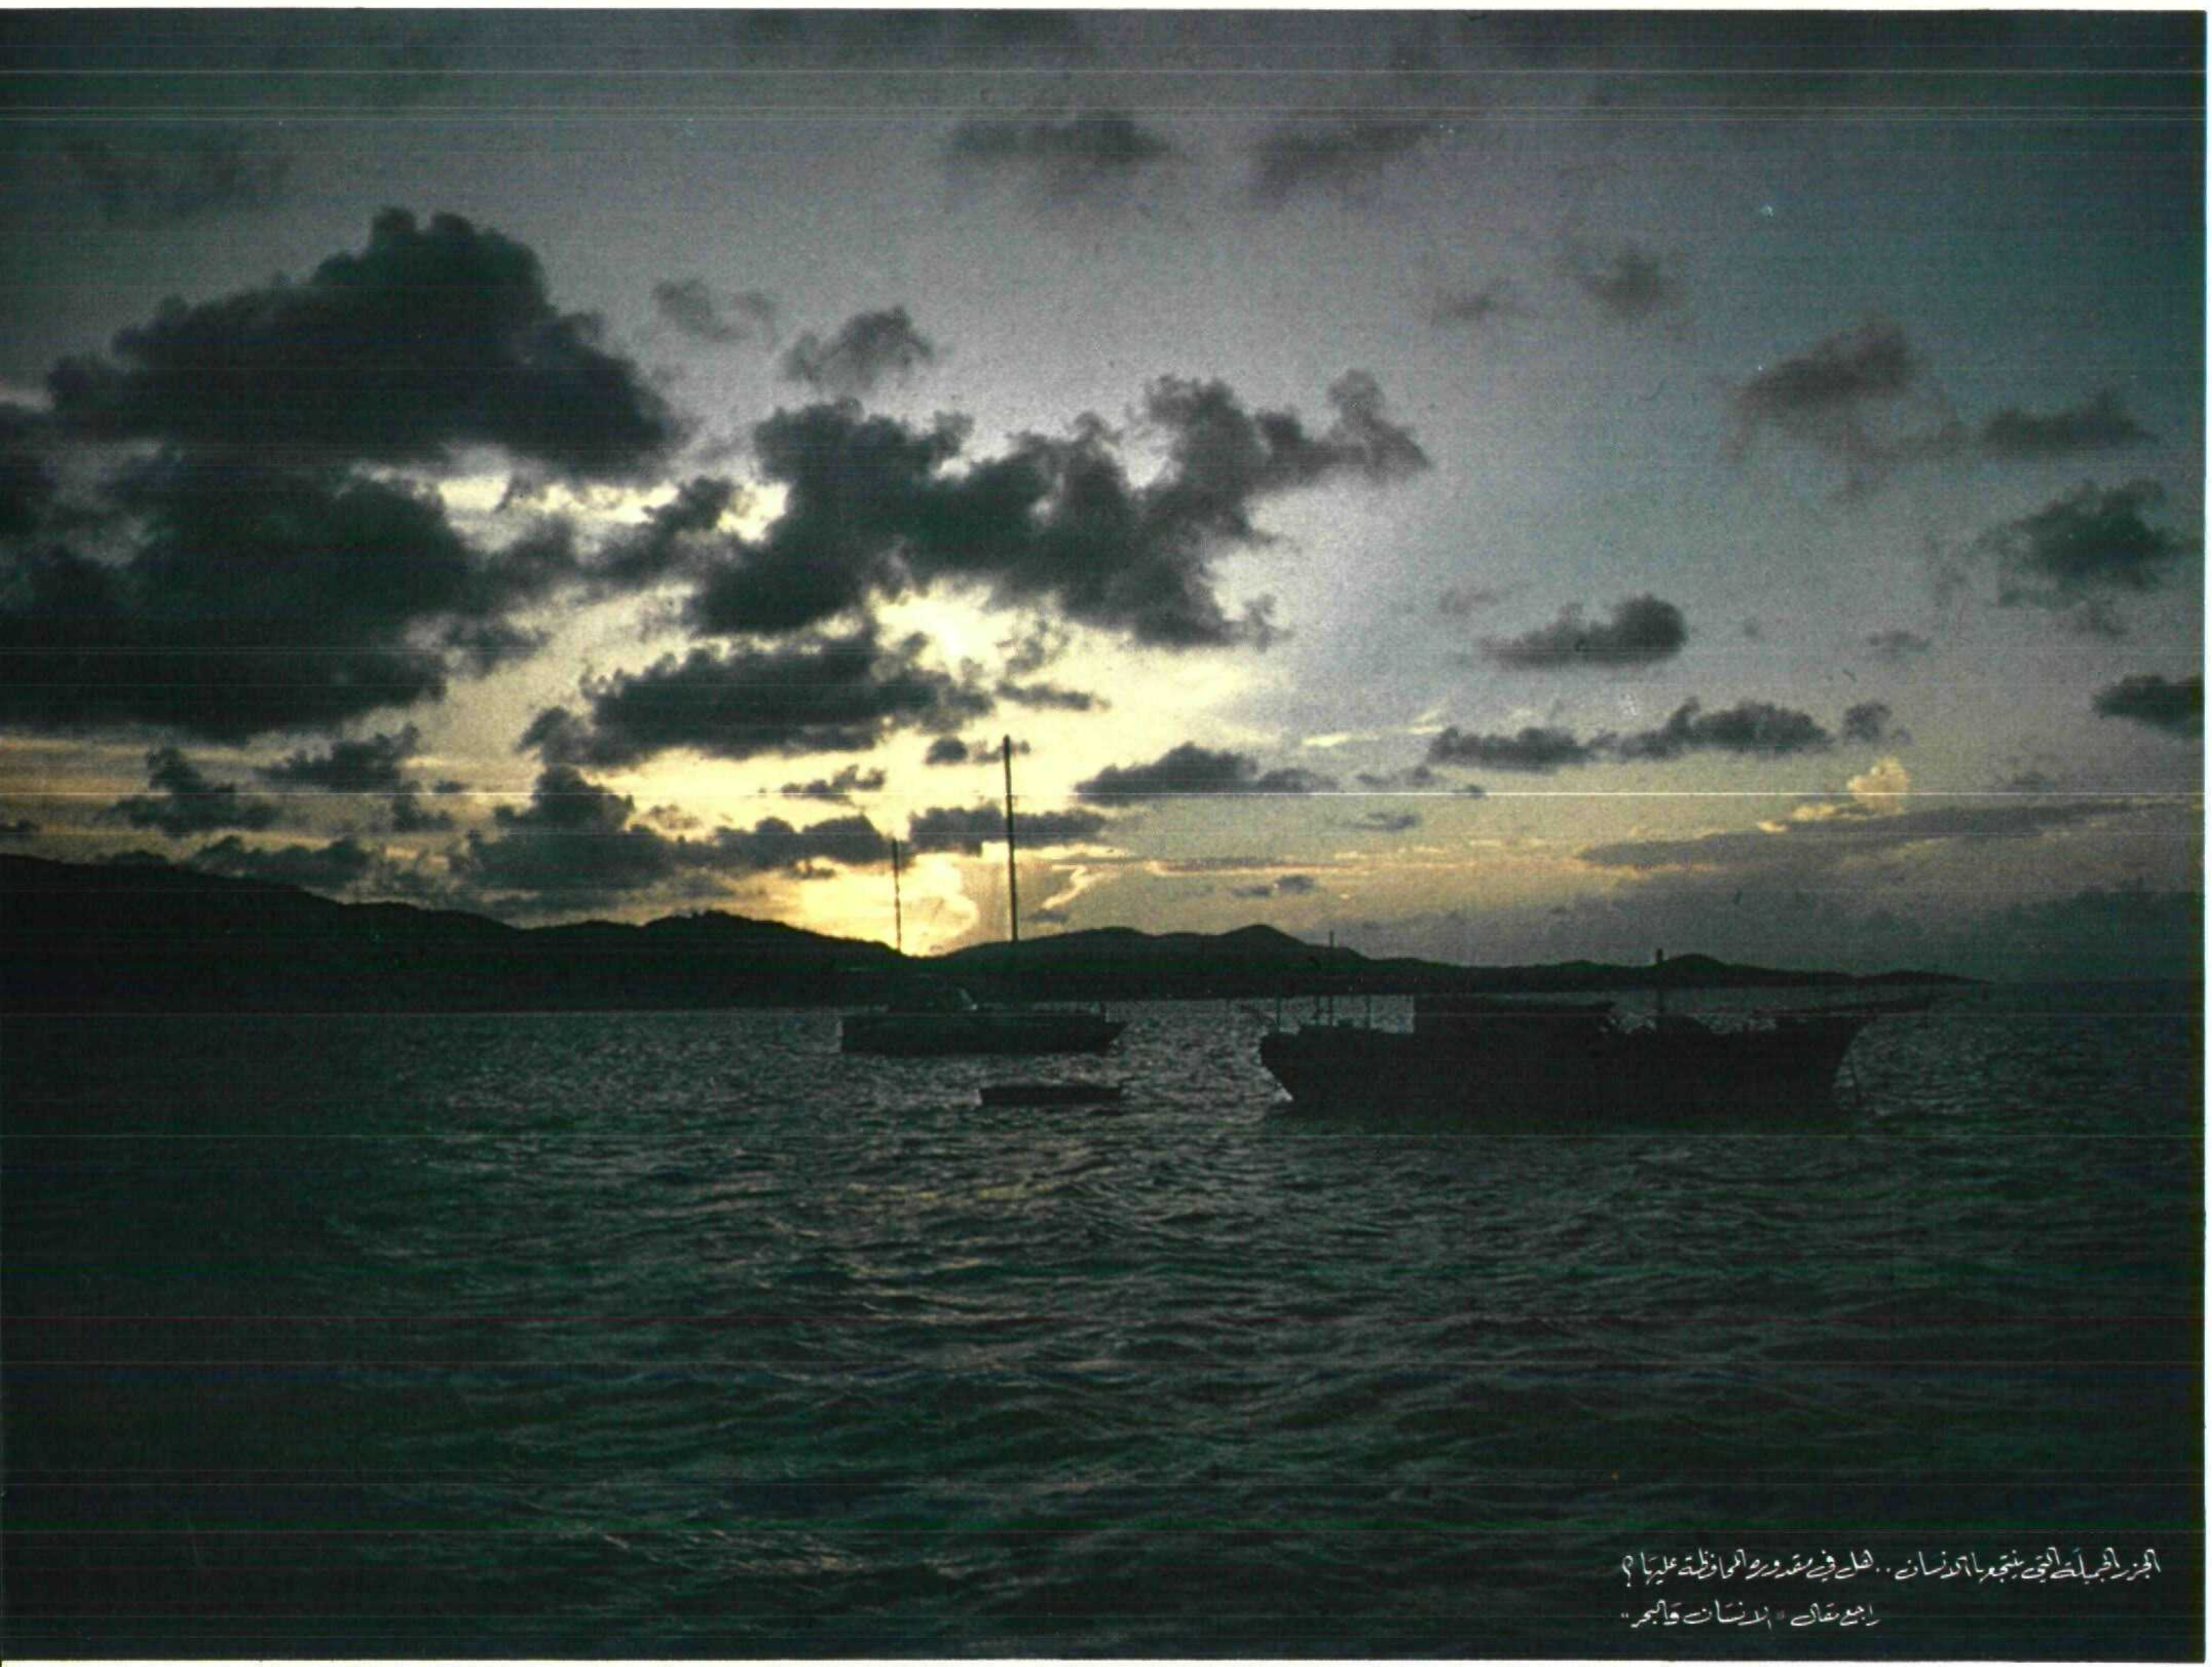 الجزر الجميلة التي ينتجعها الانسان.. هل في مقدوره المحافظة عليها؟
راجع مقال "الانسان والبحر"